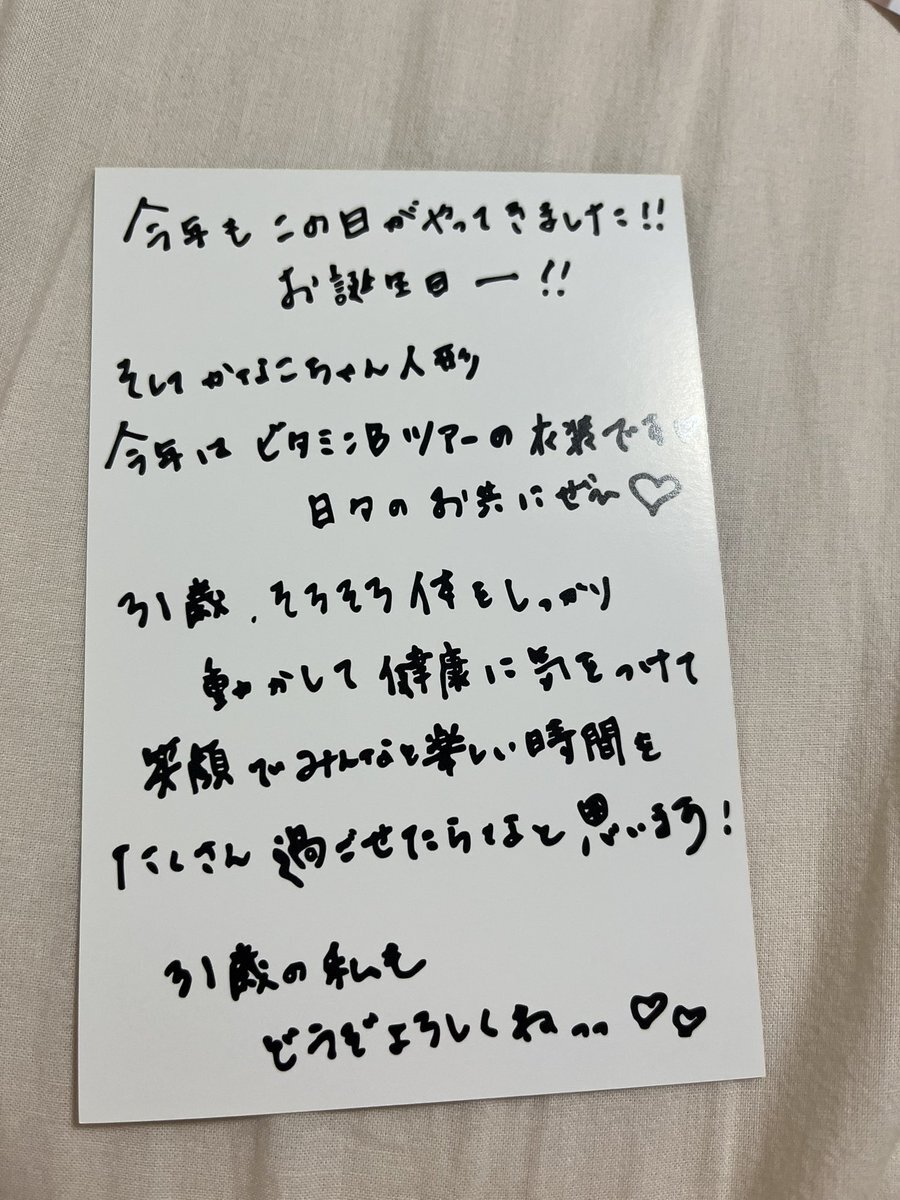 今年もこの日がやってきました!!
お誕生日ー!!
そしてかなこちゃん人形
今年はビタミンBツアーの衣装です♡
日々のお共にぜひ♡
31歳、そろそろ体をしっかり
動かして健康に気をつけて
笑顔でみんなと楽しい時間を
たくさん過ごせたらなと思います!
31歳の私も
どうぞよろしくね〜♡♡